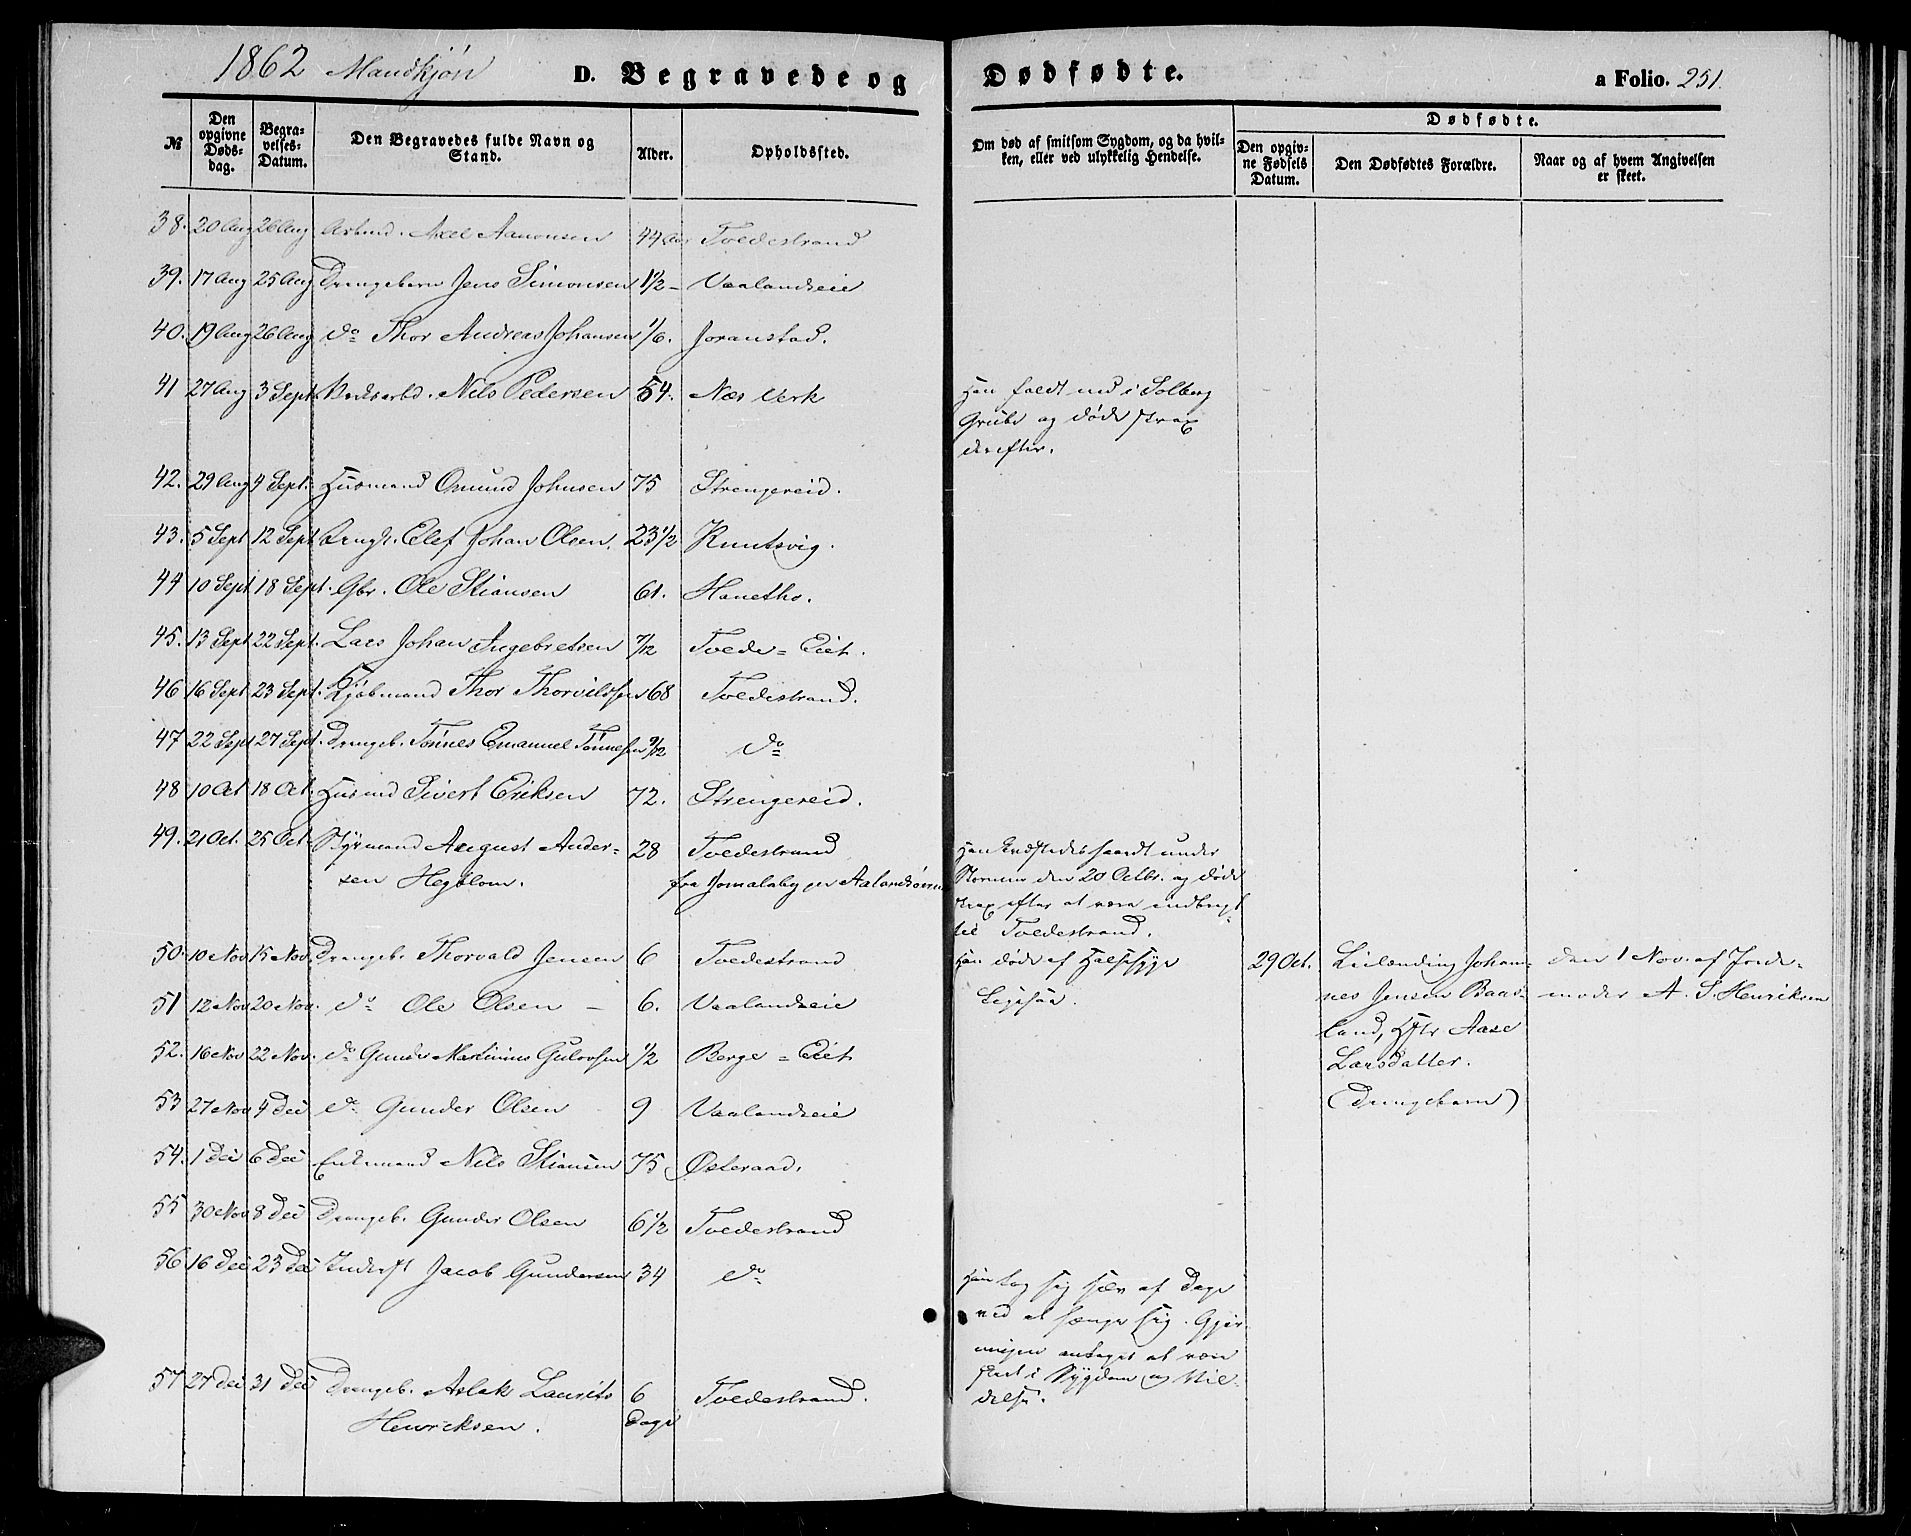 1862 Mandkjøn D. Begravede og Dødfødte. a Folio. 251.
№
Den opgivne Døds-dag.
Begra-velses-Datum.
Den Begravedes fulde Navn og Stand.
Alder.
Opholdssted.
Om død af smitsom Sygdom, og da hvil-ken, eller ved ulykkelig Hendelse.
Dødfødte.
Den opgiv-ne Fødsels Datum.
Den Dødfødtes Forældre.
Naar og af hvem Angivelsen er skeet.
38. 20 Aug 26 Aug Arbmd. Axel Aanonsen 44 Aar Tvedestrand
39. 17 Aug 25 Aug Drengebarn Jens Simonsen 1 1/2 - Vaalandseie
40. 19 Aug 26 Aug do Thor Andreas Johansen 1/6. Joranstad.
41 27 Aug 3 Sept Nils Pedersen 54. Næs Verk Han faldt ned i Solberg
Grube og døde strax
derefter.
42. 29 Aug 4 Sept. Husmand Omund Johnsen 75 Strengereid.
43. 5 Sept 12 Sept Ungk. Elef Johan Olsen. 23 1/2 Knutsvig.
44 10 Sept 18 Sept. Gbr. Ole Stiansen 61. Hanetho.
45. 13 Sept 22 Sept. Lars Johan Ingebretsen 7/12 Tvede=Eiet.
46 16 Sept 23 Sept. Kjøbmand Thor Thorvildsen 68 Tvedestrand.
47 22 Sept 27 Sept. Drengeb. Tønnes Emanuel Tønnesen 9/12 do
48 10 Oct 18 Oct. Husmd Sivert Eriksen 72. Strengereid.
49. 21 Oct. 25 Oct. Styrmand August Ander- 28 Tvedestrand Han qvæstedes haardt under
sen Hegblom. fra Jomalaby paa Aalandsøerne Stormen den 20 Octbr. og døde
strax efter at være indbragt
til Tvedestrand.
50. 10 Nov 15 Nov. Drengeb. Thorvald Jensen 6 Tvedestrand Han døde af Halssyge 29 Oct. Leilænding Johan- den 1 Nov. af Jorde-
51 12 Nov 20 Nov. do Ole Olsen - 6. Vaalandseie Ligesaa. nes Jensen Baas- moder A. S. Henriksen
land, Hstr Aase
52. 16 Nov 22 Nov. do Gunder Martinius Gulovsen 1/2 Berge=Eiet Larsdatter.
53 27 Nov 4 Dec do Gunder Olsen 9 Vaalandseie (Drengebarn)
54. 1 Dec 6 Dec Enkemand Nils Stiansen 75 Østeraad.
55 30 Nov 8 Dec Drengeb. Gunder Olsen 6 1/2 Tvedestrand
56 16 Dec 23 Dec Inderst Jacob Gundersen 34 do Han tog sig selv af Dage
ved at hænge sig. Gjer-
ningen antages at være
skeet i Sygdom og Vil-
delse.
57 27 Dec 31 Dec Drengeb. Aslak Laurits 6 Tvedestrand.
Henriksen. Dage